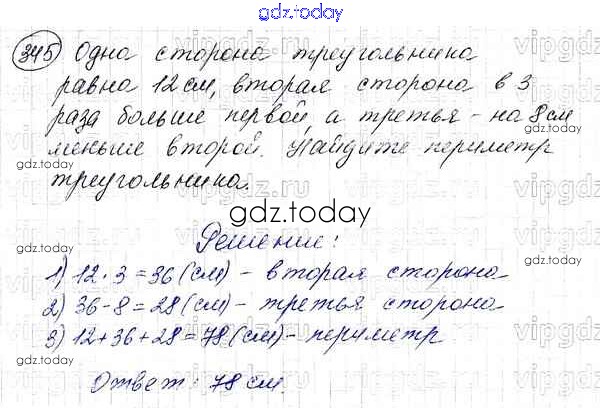 gdz.today
345 Одна сторона треугольника
равна 12 см, вторая сторона в 3
раза больше первой, а третья - на 8 см
меньше второй. Найдите периметр
треугольника.
gdz.today
Решение:
1) 12 · 3 = 36 (см) - вторая сторона
2) 36 - 8 = 28 (см) - третья сторона
3) 12 + 36 + 28 = 78 (см) - периметр
Ответ: 78 см.